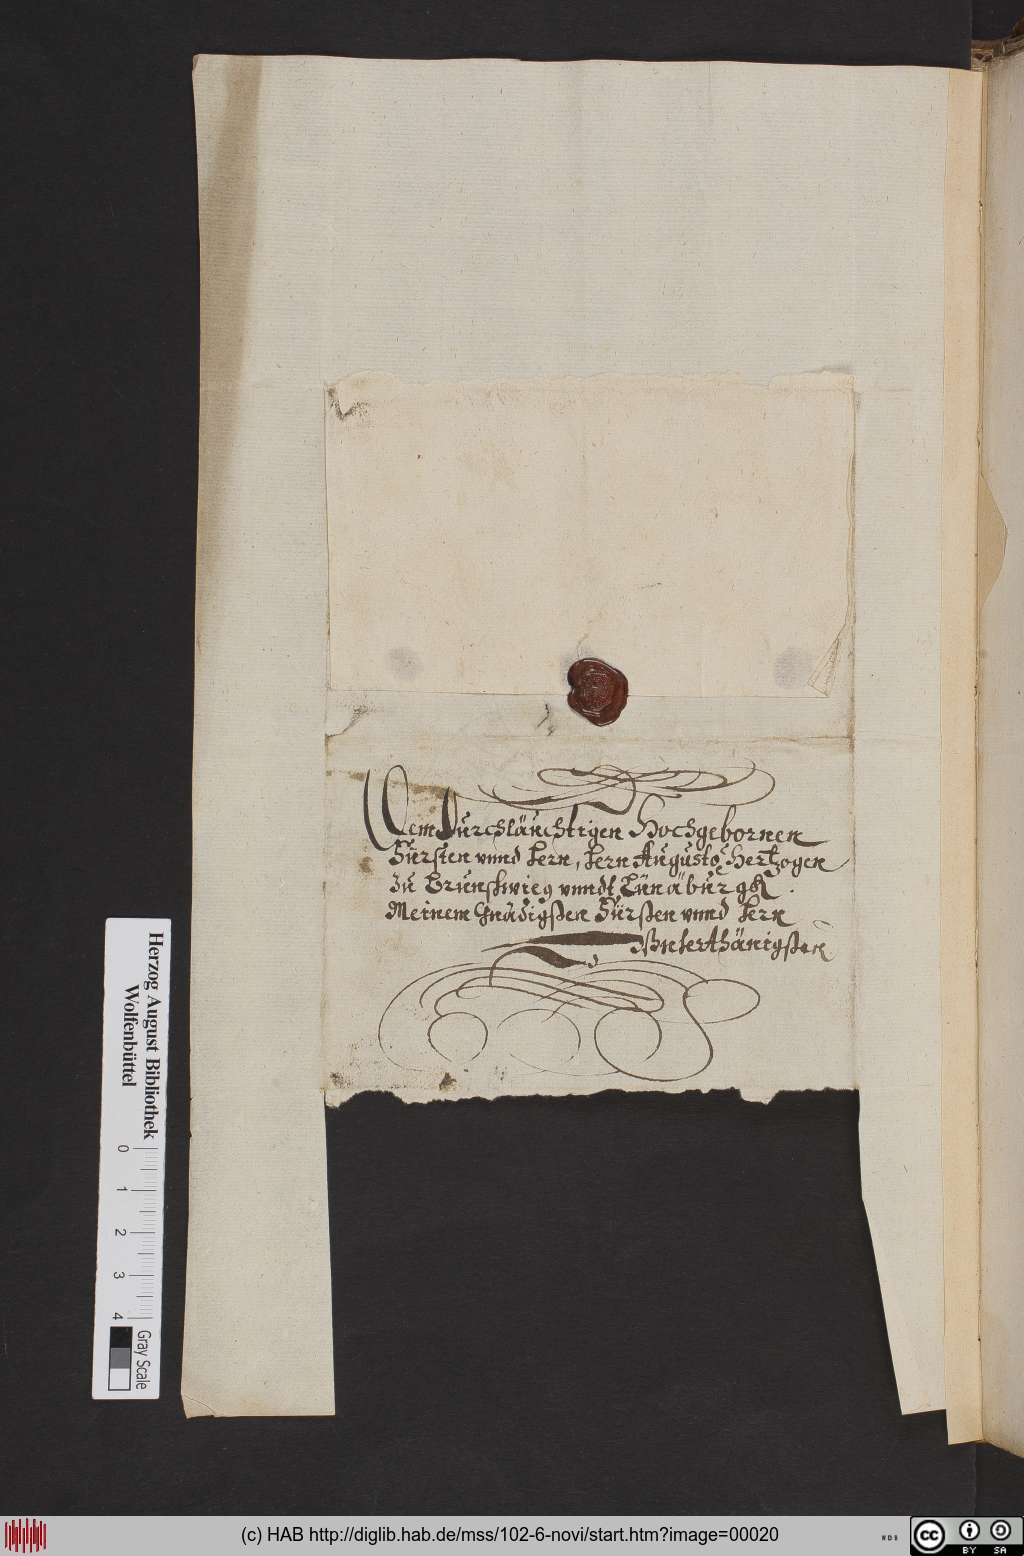 Dem Durchläuchtigen Hochgebornen
Fürsten vnnd Hern, Hern Augusto Hertzogen
zu Brunschwieg vnndt Lünäburgk.
Meinem Gnädigsten Fürsten vnnd Hern
Vnterthänigsten
Herzog August Bibliothek
Wolfenbüttel
0 1 2 3 4
Gray Scale
(c) HAB http://diglib.hab.de/mss/102-6-novi/start.htm?image=00020
WDB
cc BY SA